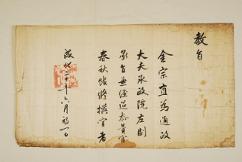 教旨
金宗直爲通政
大夫承政院左副
承旨兼經筵參贊官
春秋館修撰官者
成化 年 月初 日